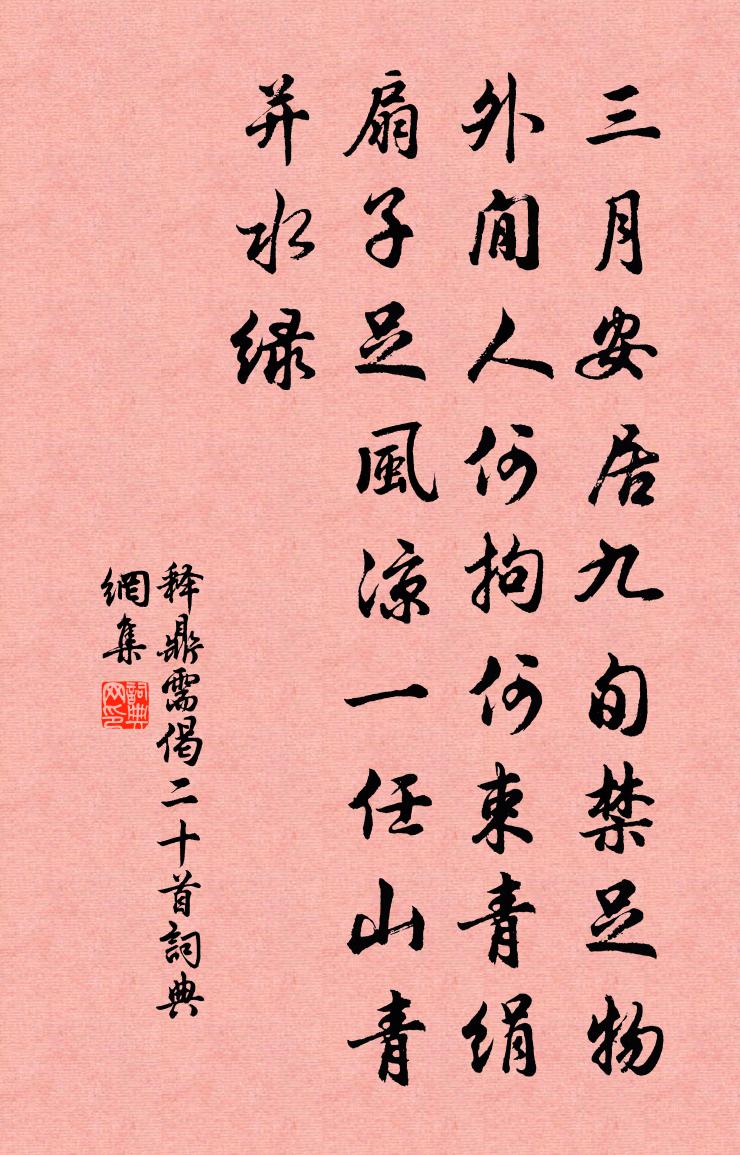 三月安居九旬禁足物
外閒人何拘何束青绢
扇子足風凉一任山青
并水绿
释鼎需偈二十首詞典
網集
詞典网印